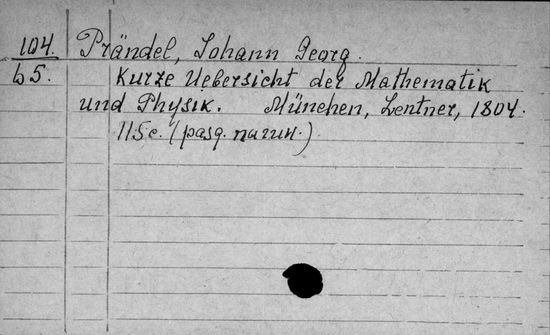 104. Prändel, Johann Georg.
b 5. Kurze Uebersicht der Mathematik
und Physik. München, Lentner, 1804.
115 с. (разд. нагин.)